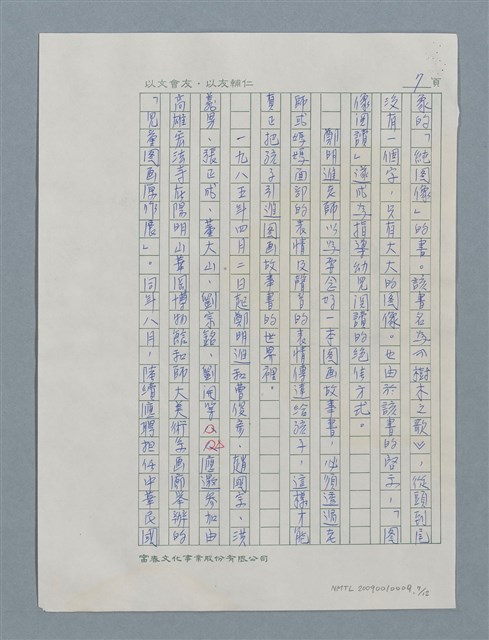 7 頁
以文會友・以友輔仁
系的「純圖像」的書。該書名為《樹木之歌》,從頭到尾
沒有一個字,只有大大的圖像。也由於該書的啓示,「圖
像閱讀」遂成為指導幼兒閱讀的絕佳方式。
鄭明進老師以為要念好一本圖画故事書,必須透過老
師或媽媽面部的表情及聲音的表情傳達給孩子,這樣才能
真正把孩子引進圖画故事書的世界裡。
一九八五年四月二日起鄭明進和曹俊彥、趙國宗、洪
義男、張正成、董大山、劉宗銘、劉開等應邀參加由
高雄宏法寺在陽明山華岡博物館和師大美術系画廊舉辦的
「兒童圖画原作展」。同年八月,陸續應聘担任中華民國
富春文化事業股份有限公司
NMTL 20090010009. 7/12